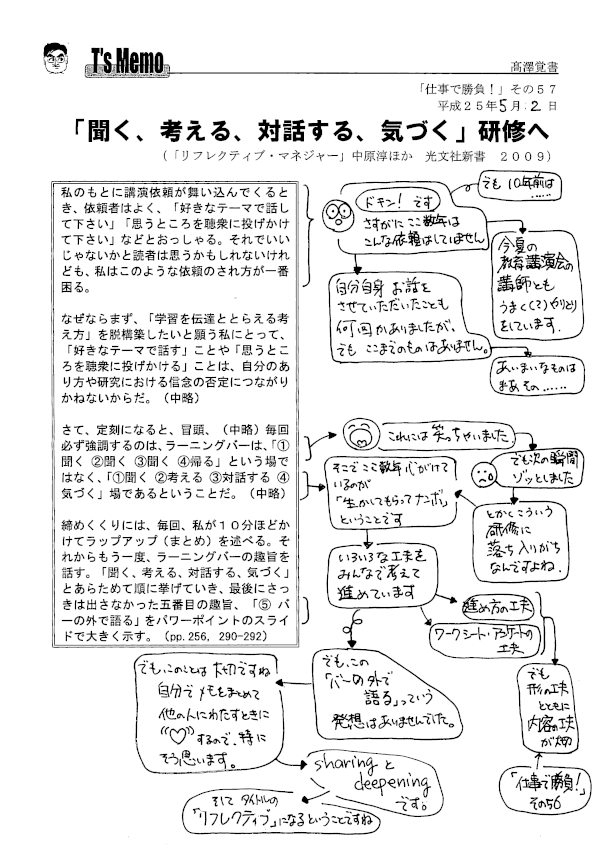 T's Memo
髙澤覚書
「仕事で勝負！」その５７
平成２５年5月２日
「聞く、考える、対話する、気づく」研修へ
（「リフレクティブ・マネジャー」中原淳ほか　光文社新書　２００９）
私のもとに講演依頼が舞い込んでくると
き、依頼者はよく、「好きなテーマで話し
て下さい」「思うところを聴衆に投げかけ
て下さい」などとおっしゃる。それでいい
じゃないかと読者は思うかもしれないけれ
ども、私はこのような依頼のされ方が一番
困る。
なぜならまず、「学習を伝達ととらえる考
え方」を脱構築したいと願う私にとって、
「好きなテーマで話す」ことや「思うとこ
ろを聴衆に投げかける」ことは、自分のあ
り方や研究における信念の否定につながり
かねないからだ。（中略）
さて、定刻になると、冒頭、（中略）毎回
必ず強調するのは、ラーニングバーは、「①
聞く ②聞く ③聞く ④帰る」という場で
はなく、「①聞く ②考える ③対話する ④
気づく」場であるということだ。（中略）
締めくくりには、毎回、私が１０分ほどか
けてラップアップ（まとめ）を述べる。そ
れからもう一度、ラーニングバーの趣旨を
話す。「聞く、考える、対話する、気づく」
とあらためて順に挙げていき、最後にさっ
きは出さなかった五番目の趣旨、「⑤ バー
の外で語る」をパワーポイントのスライ
ドで大きく示す。（pp.256, 290-292）
ドキン！ です
さすがにここ数年は
こんな依頼はしていません
でも 10年前は
……
今夏の
教育講演会の
講師とも
うまく(?)やりとり
をしています.
自分自身 お話を
させていただいたことも
何回かありましたが、
でも ここまでのものはありません。
あいまいなものは
まあその……
これには 笑っちゃいました
でも次の瞬間
ゾッとしました
とかくこういう
研修に
落ち入りがち
なんですよね.
そこでここ数年 心がけて
いるのが
「生かしてもらってナンボ」
ということです
いろいろな工夫を
みんなで考えて
進めています
進め方の工夫
ワークシート・アンケートの
工夫
でも
形の工夫
とともに
内容の工夫
が大切
「仕事で勝負！」
その56
でも、この
「バーの外で
語る」っていう
発想はありませんでした。
でも、このことは 大切ですね
自分でメモをまとめて
他の人にわたすときに
“♡”
するので、特に
そう思います。
sharing と
deepening
です。
そして タイトルの
「リフレクティブ」になるということですね